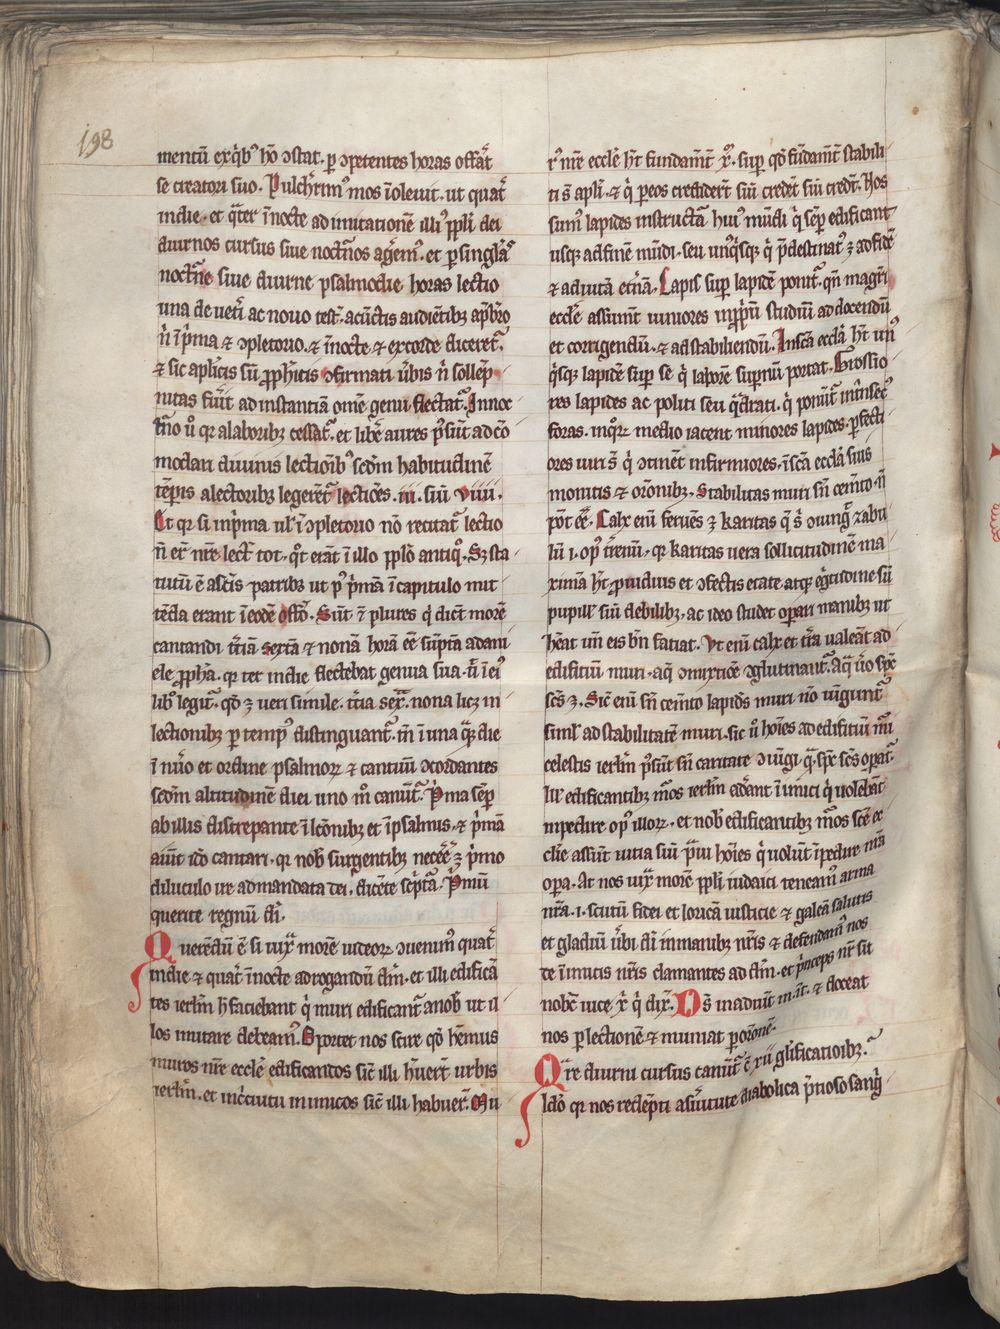 198
mentū exq̇bꝰ hō ↄstat. ꝑ ↄpetentes horas offāt
se creatori suo. Pulcħrimꝰ mos īoleuit. ut quat͛
indie. et q̄ter īnocte ad imitationē illiꝰ pplī dei
diurnos cursus siue noct̄nos agemꝰ. et ꝑ singlās
noct̄ne siue diurne psalmodie horas lectio
una de uetī ac nouo test̄. acūctis audiētibꝫ aꝑbro
n̄ īp̄ma ⁊ ↄpletorio. ⁊ īnocte ⁊ excorde diceret͛.
⁊ sic aplīcis sū pphīcis ↄfirmati ūbis n̄ sollēp
nitas fuīt ad instantiā omē genu flectat͛. Innoc
t̄no ū qꝛ alaboribꝫ cessat͛. et libē aures p̄sūt ad cō
modari diuinis lectiōibꝰ sc̄dm habitudinē
tēꝑis alectoribꝫ legerēt͛ lectiōes. iii. siū viiii.
Et qꝛ si inp̄ma ul̄ ī ↄpletorio nō recitat͛ lectio
n̄ er̄ nr̄e lect̄ tot. q̊t erāt ī illo pplō antiqꝰ. Sꝫ sta
tutū ē asc̄is patribꝫ ut pꝰ p̄mā ī capitulo mit
tēda erant īeodē offō. Sūt ⁊̄ plures q̇ dic̄t morē
cantandi t̄tiā sextā ⁊ nonā horā ēē sūptā adani
ele pph̄a. qꝛ ter indie flectebat genua sua. n̄ ī eiꝰ
libꝰ legit͛. qđ ꝫ ueri simile. t̄tia sex̄. nona licꝫ in
lectionibꝫ ꝑ tempꝰ distinguant͛. tn̄ ī una q̄ꝫ die
ī nūo et ordine psalmoꝝ ⁊ cantiuū ↄcordantes
sc̄dm altitudinē diei uno m̊ canūt͛. P̄ma semꝑ
ab illis discrepante ī lc̄onibꝫ et ī psalmis. ⁊ p̄mā
aiūt iđo cantari. qꝛ nob̄ surgentibꝫ necēē ꝫ p̄mo
diluculo ire admandata dei. dicēte sc̄pt̄a. P̄mū
querite regnū di͛.
Querēdū ē si iux̄ morē iudeoꝝ ↄuenimꝰ quat͛
indie ⁊ quat͛ īnocte adrogandū dm̄. et illi edificā
tes ierlm̄ h̄ faciebant q̇ muri edificant͛ anob̄ ut il
los imitare debeamꝰ. Oportet nos scire qđ hēmus
muros nr̄e ecclē edificandos sic̄ illi h̄uer̄t urbis
ierlm̄. et inc̄cuitu inimicos sic̄ illi habuer̄. Mu
rꝰ nr̄e ecclē h̄t fundam̄t xꝰ. suꝑ qđ fūdam̄t stabili
ti s̄ apli. ⁊ q̇ ꝑeos crediderī siū credēt siū credt̄. Nos
sumꝰ lapides instructā huiꝰ mūdi q̇ semꝑ edificant͛
usqꝫ adfinē mūdi. seu unꝰq̇sqꝫ q̇ p̄destinatꝰ ꝫ adfidē
⁊ aduitā et̄nā. Lapis suꝑ lapidē ponit͛. qn̄ magr̄i
ecclē assūmt iuniores inp̄pū studiū addocendū
et corrigendū. ⁊ adstabiliendū. Insc̄a ecclā h̄t unꝰ
q̇sqꝫ lapidē suꝑ se q̇ laborē suꝑnū portat. Grossio
res lapides ac politi seu q̄drati. q̇ ponūt͛ intīnsecꝰ
foras. inqꝝ medio iacent minores lapides. ꝑfecti
ores uiri s̄ q̇ ↄtinēt infirmiores. īsc̄a ecclā suis
monitis ⁊ orōnibꝫ. Stabilitas muri sn̄ cem̄to n̄
pōt ēē. Calx eni̅ feruēs ꝫ karitas q̄ s̄ ↄiungit͛ zabu
lū .i. opꝰ t̄renū. qꝛ karitas uera sollicitudinē ma
ximā h̄t ꝓ uiduis et ↄfectis etate atqꝫ eg̊tudine siū
pupill̄ siū debilibꝫ. ac ideo studet oꝑari manibꝫ ut
h̄eat un̄ eis bn̄ faciat. Vt eni̅ calx et t̄ra ualeāt ad
edifitiū muri. aq̄ ↄmixtiōe ↄglutinant͛. Aq̄ ūo spc̄
sc̄s ꝫ. Sic̄ eni̅ sn̄ cem̄to lapides muri nō iūgunt͛
simil̄ ad stabilitatē muri. sic ū hoīes ad edifitiū mī
celestis ierlm̄ p̄sūt sn̄ caritate ↄiūgi. q̄. spc̄ sc̄s oꝑat͛.
Ill̄ edificantibꝫ mꝰos ierlm̄ ad̄ant īimici q̇ uolebāt
inpedire opꝰ illoꝝ. et nob̄ edificantibꝫ mꝰos sc̄e ec
clīe assūt uitia siū p̄ui hoīes q̇ uolūt īpedire nr̄a
oꝑa. At nos iux̄ morē pplī iudaici teneamꝰ arma
nr̄a .i. scutū fidei et loricā iusticie ⁊ galeā salutis
et gladiū ūbi di͛ inmanibꝫ nr̄is ⁊ defendam̄ nos
de īimicis nr̄is clamantes ad dm̄. et p̄nceps nr̄ sit
nobc̄ uice x̄ q̇ dix̄. Ds̄ inadiut̄ m. īt̄. ⁊ doceat
nos ꝑ lectionē ⁊ muniat ꝑ orōnē.
Q̄re diurni cursus canūt͛ c̄ xii glīficatioībꝫ.
Ido̅ qꝛ nos redēpti asūitute diabolica p̄tioso sang̊